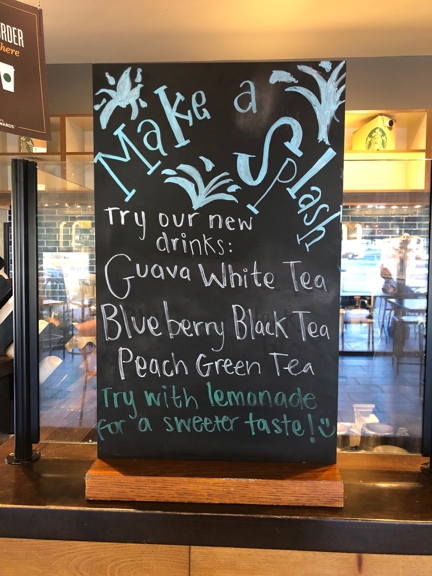 RDER
here
Make a
Splash
Try our new
drinks:
Guava White Tea
Blueberry Black Tea
Peach Green Tea
Try with lemonade
for a sweeter taste!